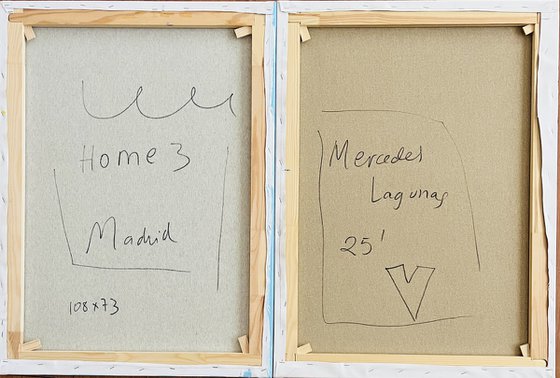 Home 3
Madrid
108x73
Mercedes
Lagunas
25'